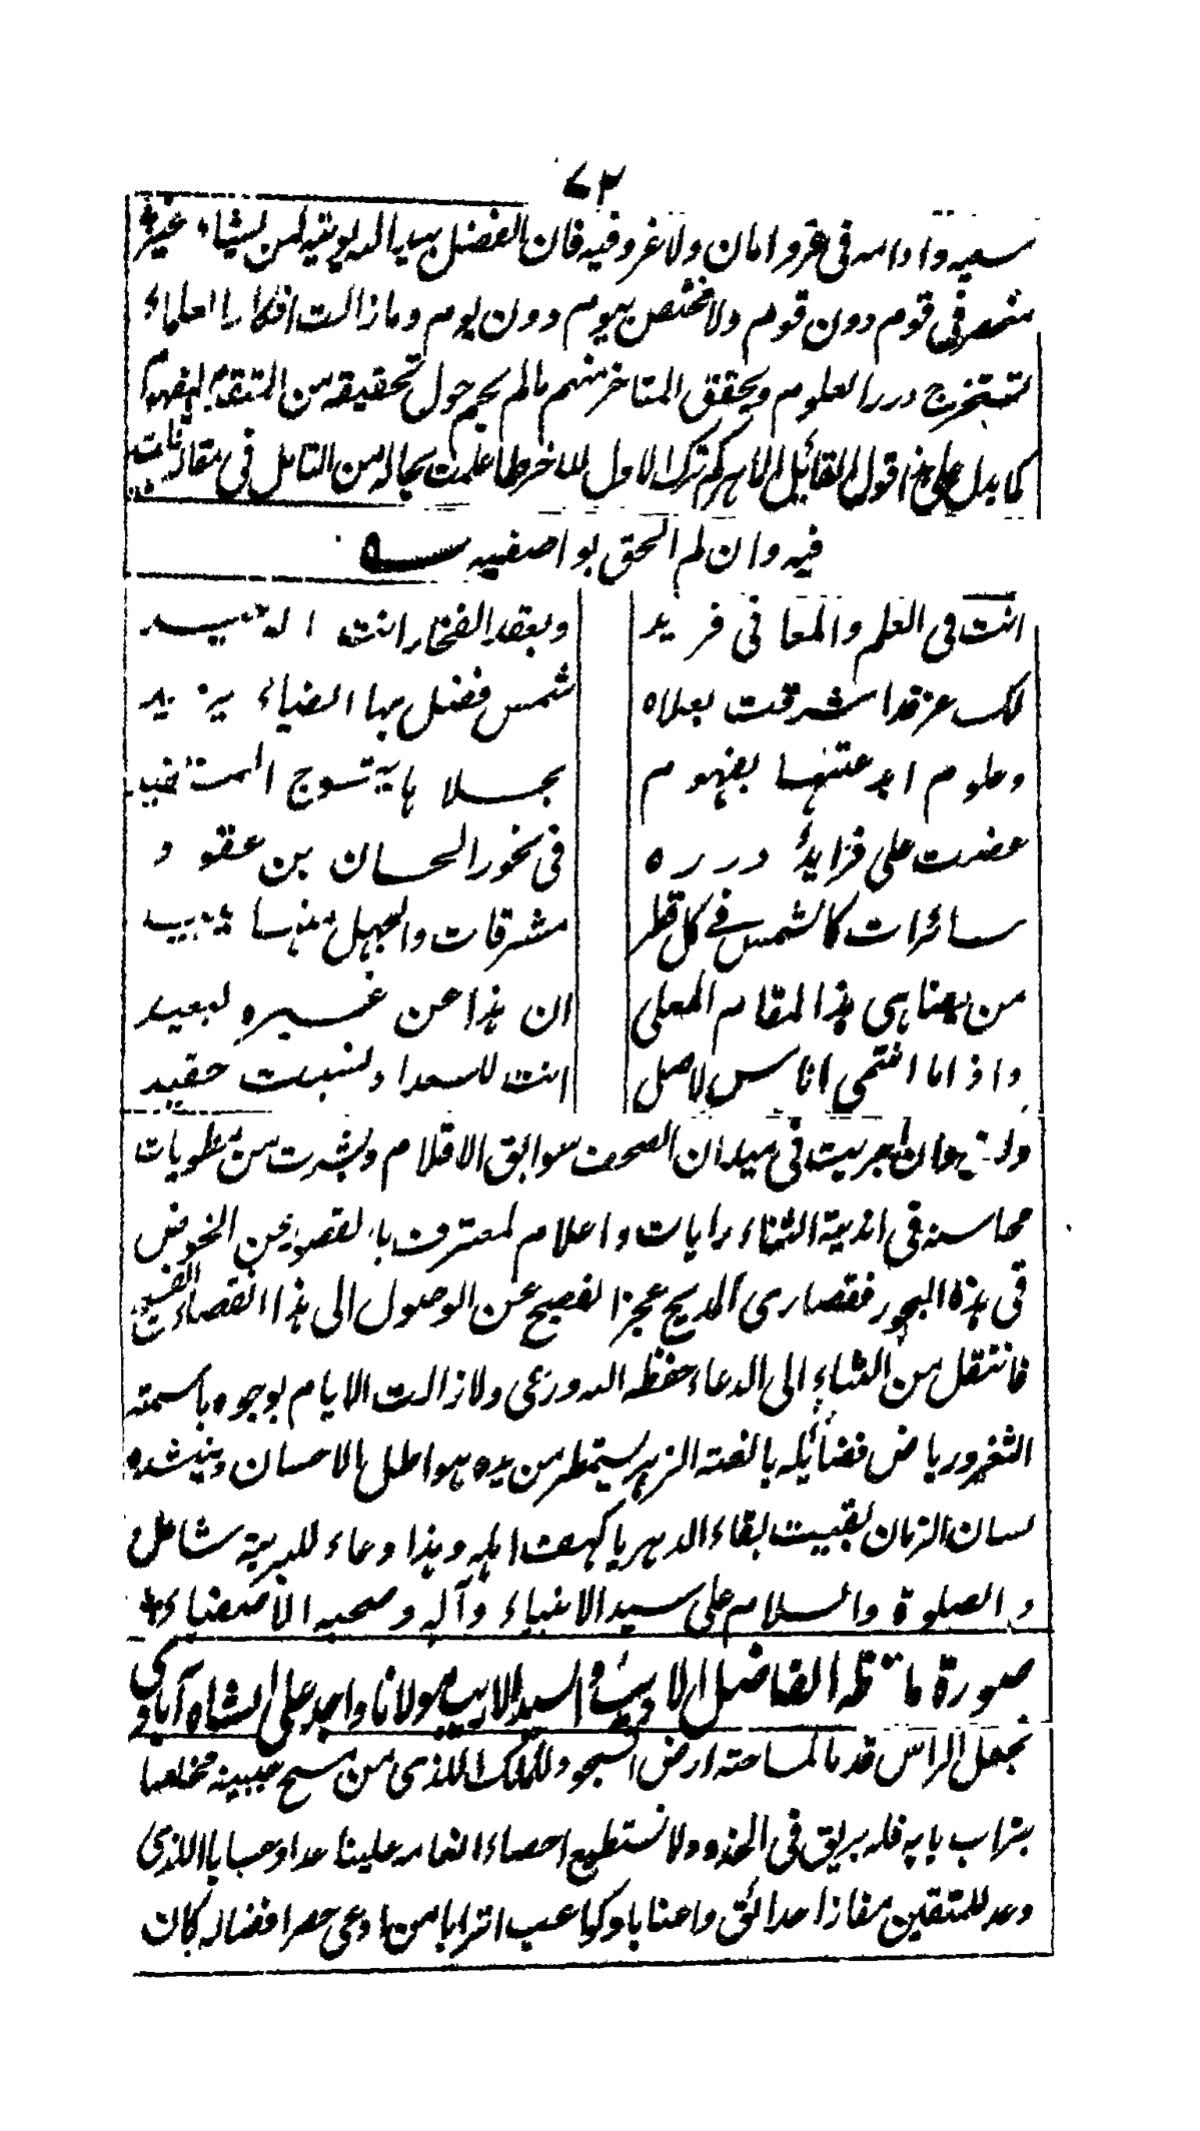 ٧٢
سعيه وادامه فى عز وامان ولا غرو فيه فان الفضل بيد الله يوتيه لمن يشاء غير
منحصر فى قوم دون قوم ولا مختص بيوم دون يوم وما زالت افكار العلماء
تستخرج درر العلوم ويحقق المتاخر منهم مالم يحم حول تحقيقه من المتقدم الفهوم
كما يدل على هذا قول القائل الماهر كم ترك الاول للاخر طا علمت بحاله من التامل فى مقالة
فيه وان لم الحق بواصفيه
انت فى العلم والمعا فى فريد وبعقد الفخار انت ا
لك عز قد اشرقت بعلاه شمس فضل بها الضياء يزيد
وعلوم ابدعتها بفهوم بجلاها يتوج المستفيد
عضت على فرايد درره فى نحور الحسان بن عقود
سائرات كالشمس فے كل قطر مشرقات والجهل منها
من يضاهى هذا المقام المعلى ان هذا عن غيره لبعيد
واذا ما انتمى اناس لاصل انت للسعد اذ نسبت حفيد
وان اجريت فى ميدان الصحف سوابق الاقلام ونشرت من مطويات
محاسنه فى اندية الثناء رايات واعلام لمعترف بالقصور عن الخوض
فى هذه البحور فقصارى المديح عجز الفصيح عن الوصول الى هذا الفضاء الفسيح
فانتقل من الثناء الى الدعاء حفظه الله ورعى ولا زالت الايام بوجوه باسمته
الثغر ورياض فضائله يا نعته الزهر يستمطر من يده هواطل الاحسان وينشده
لسان الزمان بقيت بقاء الدهر يا كهف اهله وهذا دعاء للبرية شامل
والصلوة والسلام على سيد الانبياء وآله وصحبه الاصفياء
صورة ما نظمه الفاضل الاديب والسيد الاريب مولانا واجد على الشاه آبادى
نجعل الراس قدما لمساحته ارض السجود للملك اللذى من مسح جبينه مخلصا
بتراب بابه فله بريق فى الخدود ولا نستطيع احصاء انعامه علينا عدا وحسابا اللذى
وعد للمتقين مفازا حدائق واعنابا وكواعب اترابا من ادعى حصر افضاله كان